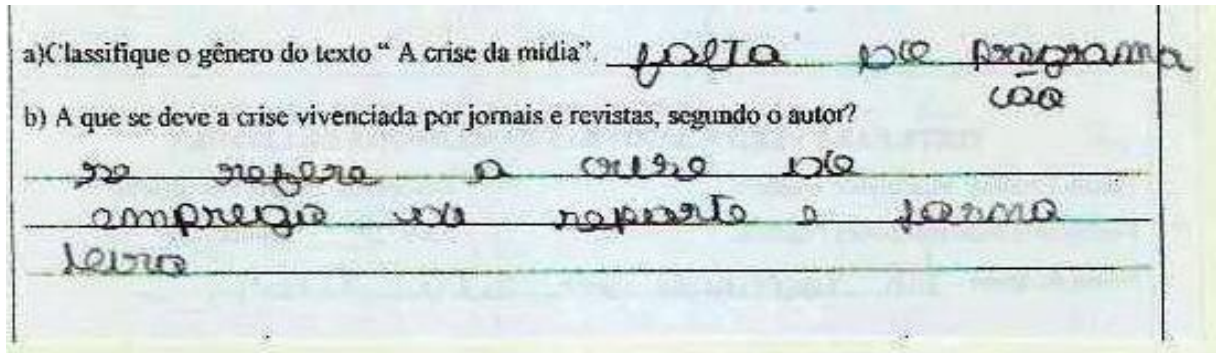 a)Classifique o gênero do texto “ A crise da mídia”. falta de programa
ção
b) A que se deve a crise vivenciada por jornais e revistas, segundo o autor?
se refere a crise de
emprego de reparte e jorna
leiro